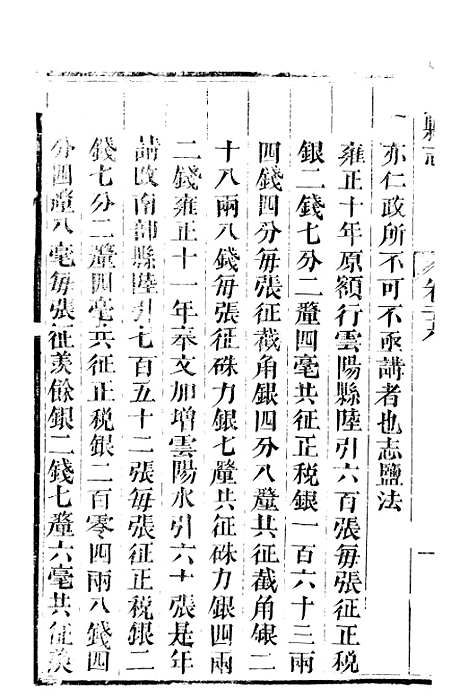 縣志
卷二十九
一
亦仁政所不可不亟講者也志鹽法
雍正十年原額行雲陽縣陸引六百張每張征正税
銀二錢七分二釐四毫共征正税銀一百六十三兩
四錢四分每張征截角銀四分八釐共征截角銀二
十八兩八錢每張征硃力銀七釐共征硃力銀四兩
二錢雍正十一年奉文加增雲陽水引六十張是年
請改南部縣陸引七百五十二張每張征正税銀二
錢七分二釐四毫共征正税銀二百零四兩八錢四
分四釐八毫每張征羡餘銀二錢七釐六毫共征羡